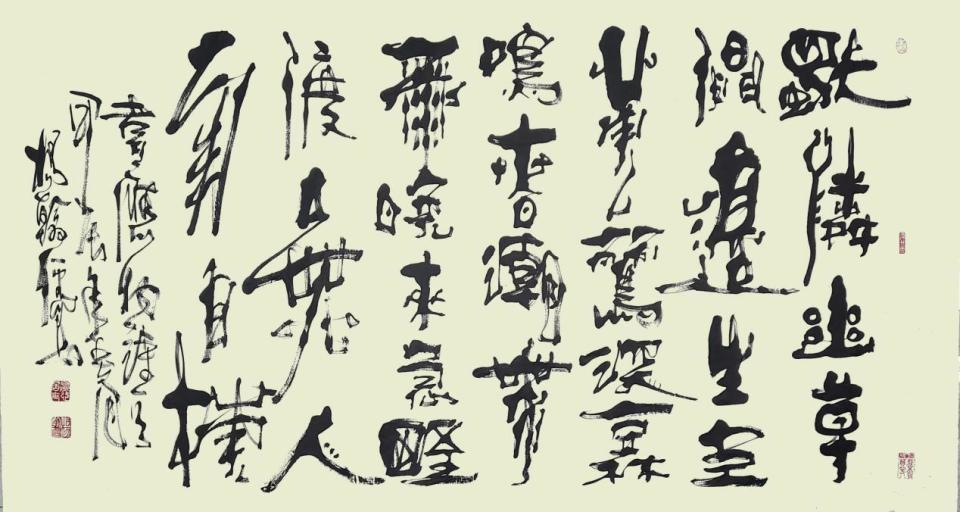 獨憐幽草
澗邊生上
有黃鸝深樹
鳴春潮帶
雨晚來急野
渡無人
舟自橫
書應物
甲辰年春月